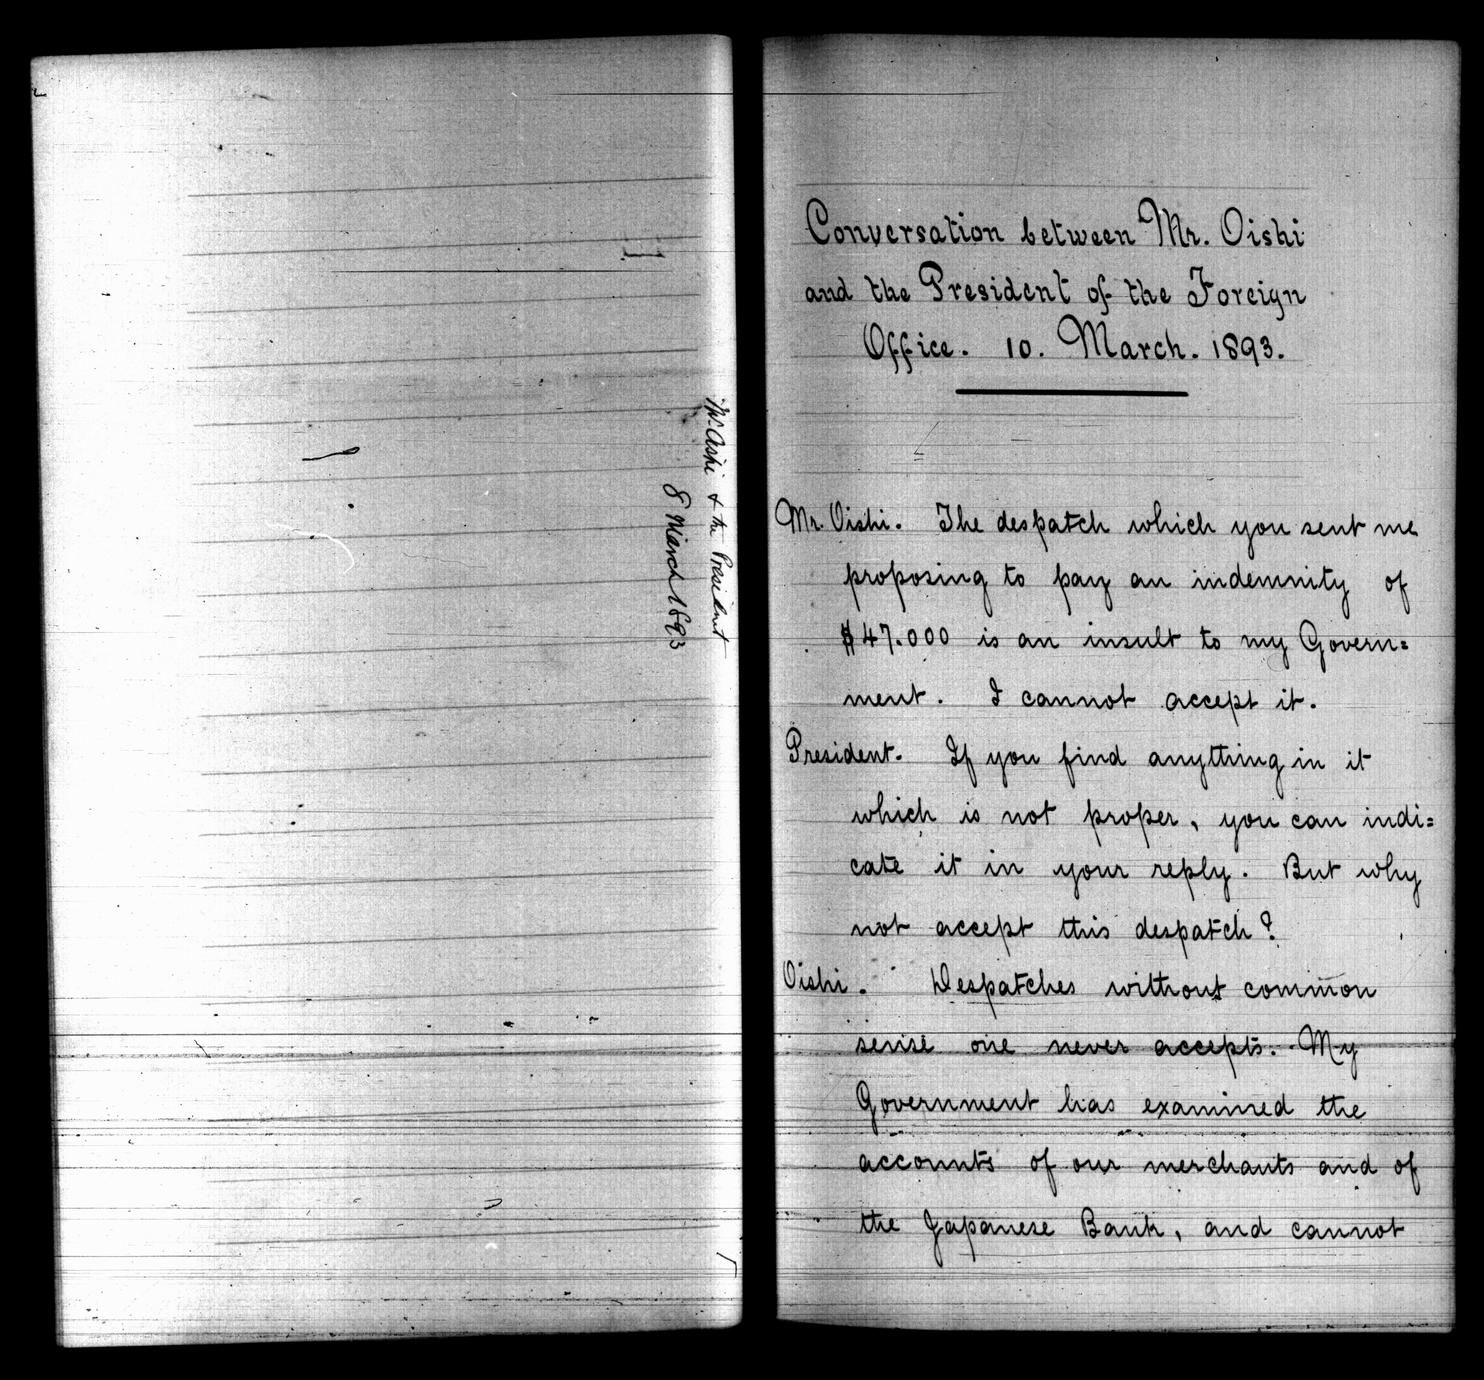 Mr. Oishi & the President
8 March 1893
Conversation between Mr. Oishi
and the President of the Foreign
Office. 10. March. 1893.
Mr. Oishi. The despatch which you sent me
proposing to pay an indemnity of
$47.000 is an insult to my Govern=
ment. I cannot accept it.
President. If you find anything in it
which is not proper, you can indi=
cate it in your reply. But why
not accept this despatch?
Oishi. Despatches without common
sense one never accepts. My
Government has examined the
accounts of our merchants and of
the Japanese Bank, and cannot